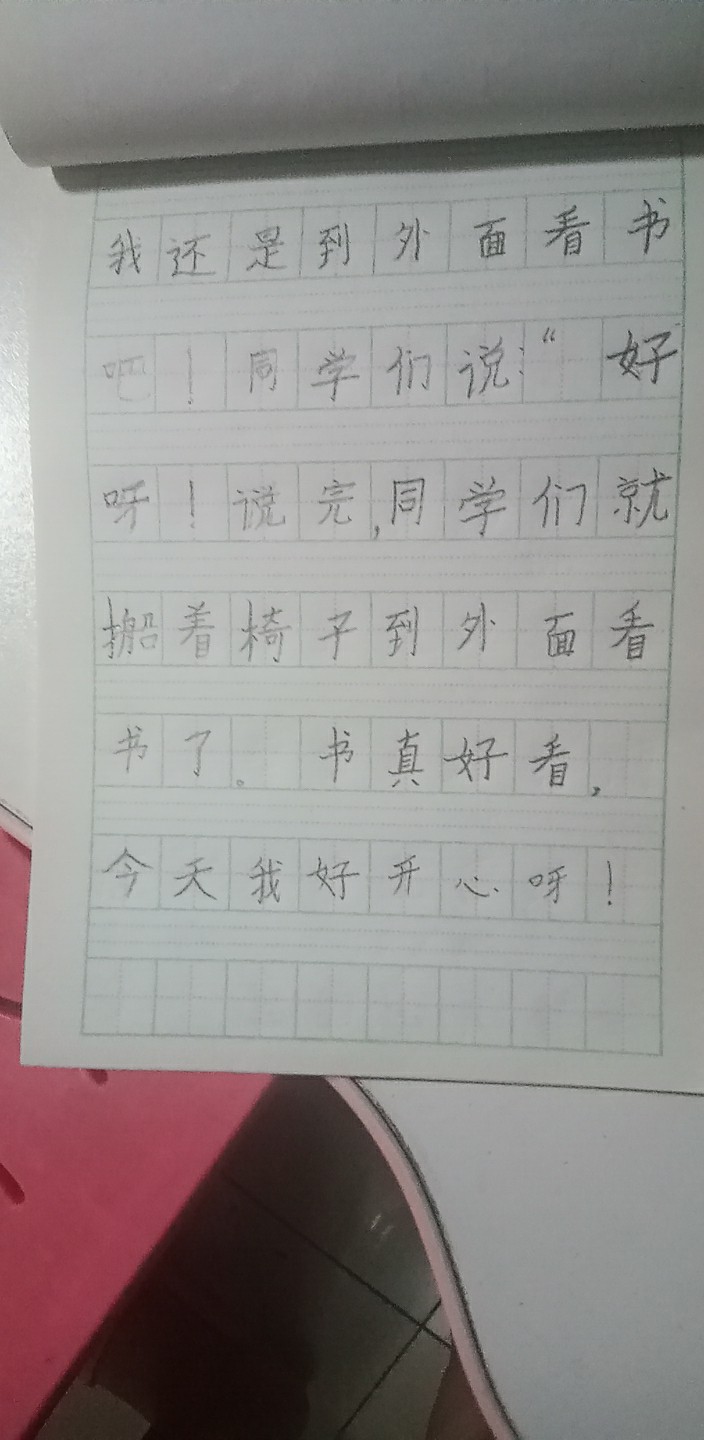 我还是到外面看书
吧！同学们说：“好
呀！说完，同学们就
搬着椅子到外面看
书了。书真好看，
今天我好开心呀！